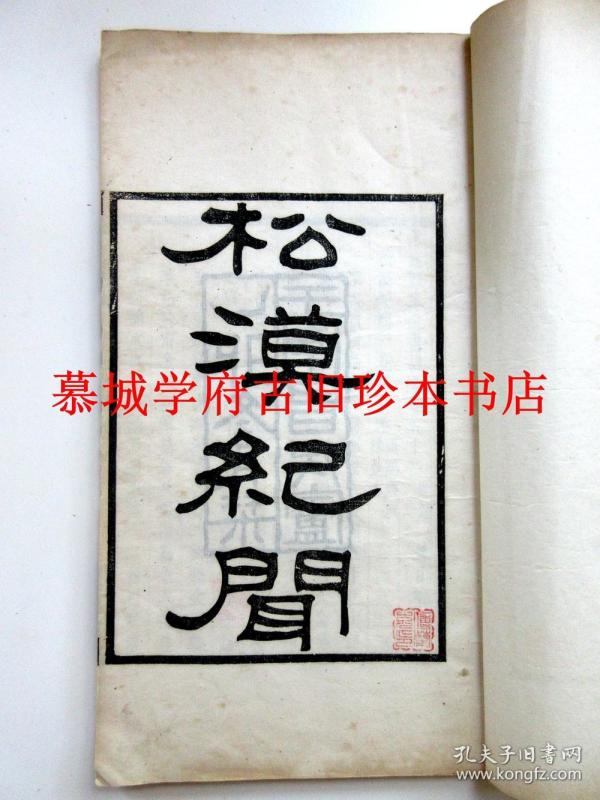 松漠紀聞
慕城学府古旧珍本书店
孔夫子旧书网
www.kongfz.com